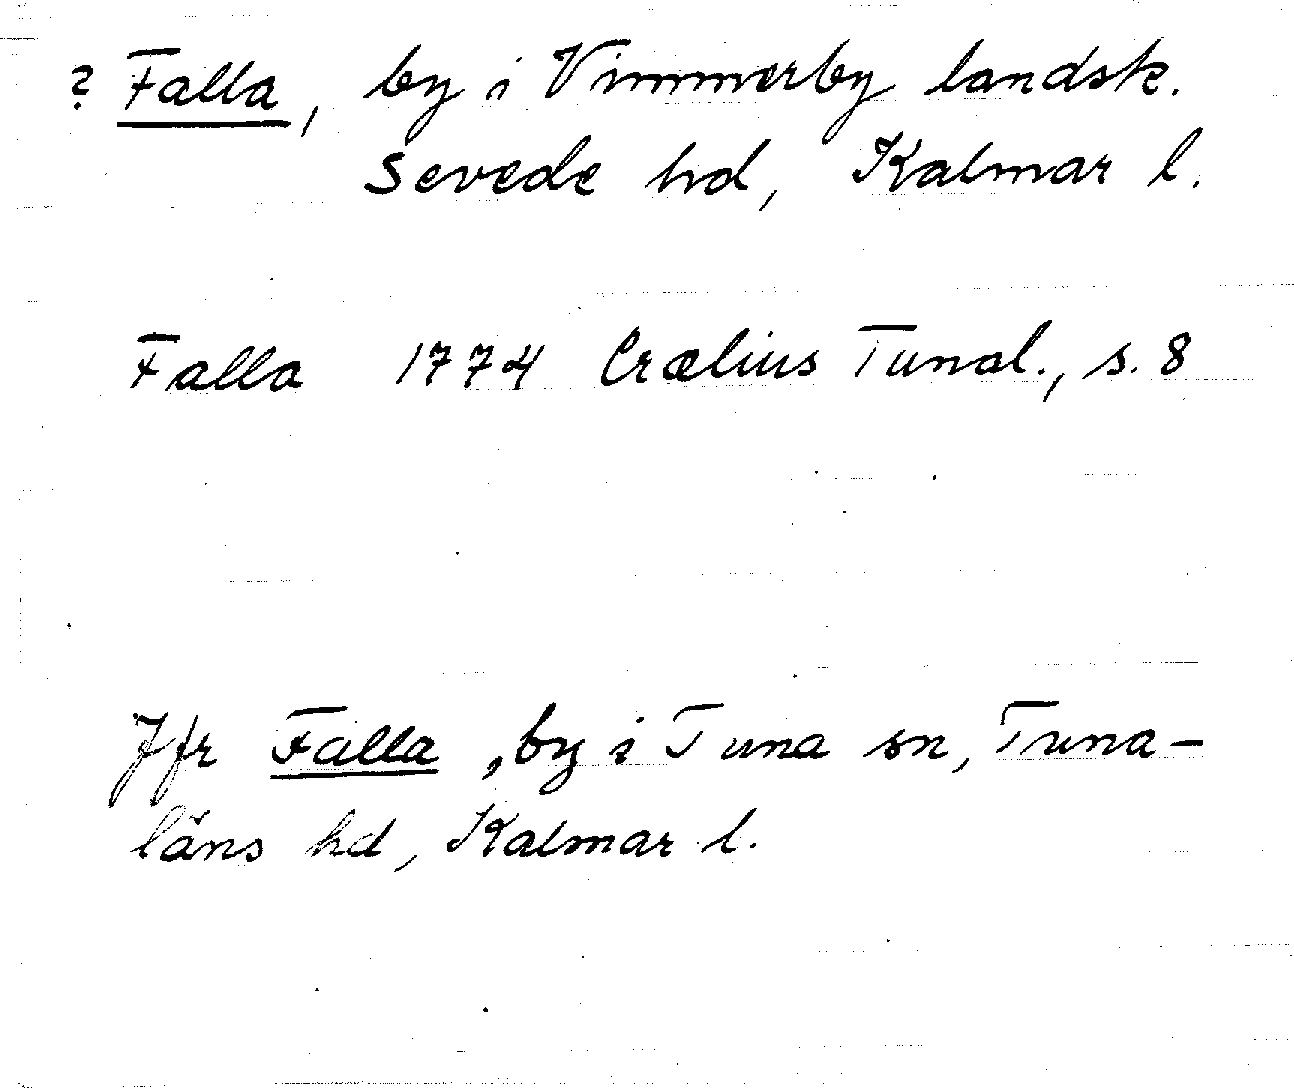 ? Falla, by i Vimmerby landsk.
Sevede hd, Kalmar l.
Falla 1774 Crælius Tunal., s. 8
Jfr Falla, by i Tuna sn, Tuna-
läns hd, Kalmar l.